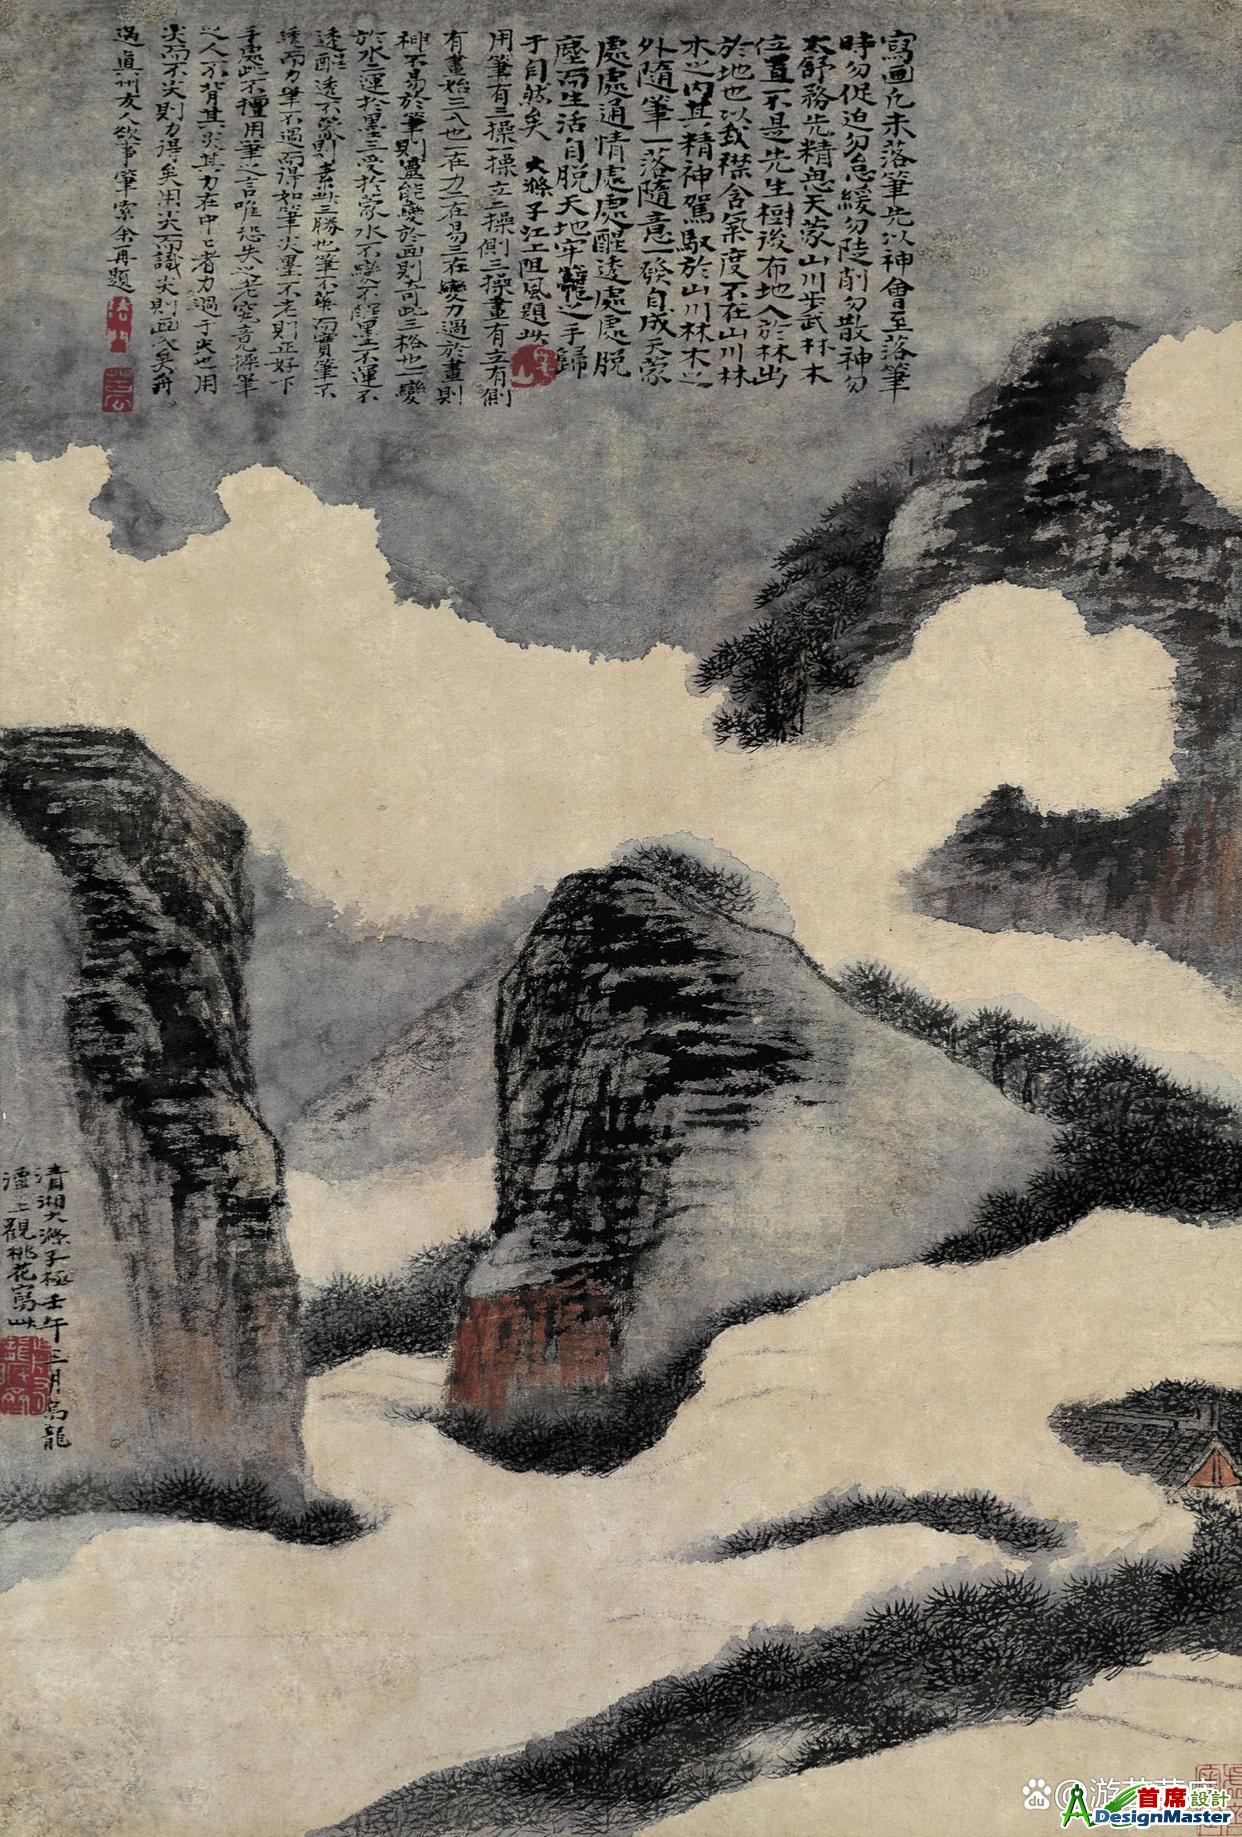 寫画凡未落筆先以神會至落筆
時勿促迫勿怠緩勿陡削勿散神勿
太舒務先精思天蒙山川步武林木
位置不是先生樹後布地入於林出
於地也以我襟含氣度不在山川林
木之內其精神駕馭於山川林木之
外隨筆一落隨意一發自成天蒙
處處通情處處醒透處處脫
塵而生活自脫天地牢籠之手歸
于自然矣 大滌子江上阻風題此
用筆有三操一操立二操側三操畫有立有側
有畫始三入也一在力二在易三在變力過於畫則
神不易於筆則靈能變於画則奇此三格也一變
於水二運於墨三受於蒙水不變不醒墨不運不
透醒透不蒙則素此三勝也筆不華而實筆不
透而力筆不過而得如筆尖墨不老則正好下
手處此不擅用筆之言唯恐失之老究竟操筆
之人不背其尖其力在中中者力過于尖也用
尖而不尖則力得矣用尖而識尖則画入矣舟
過真州友人欲事筆索余再題
清湘大滌子極壬午三月烏龍
潭上觀桃花寫此
首席設計
DesignMaster